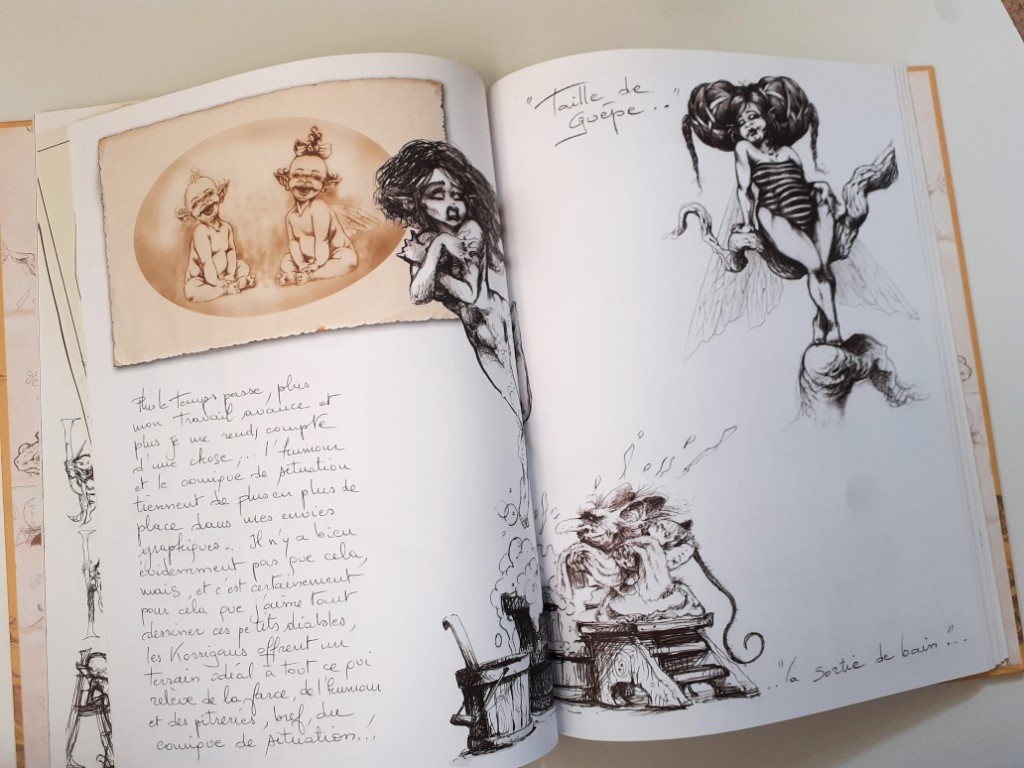 Plus le temps passe, plus
mon travail avance et
plus je me rends compte
d'une chose,... l'humour
et le comique de situation
tiennent de plus en plus de
place dans mes envies
graphiques... Il n'y a bien
évidemment pas que cela,
mais, et c'est certainement
pour cela que j'aime tant
dessiner ces petits diables,
les Korrigans offrent un
terrain idéal à tout ce qui
relève de la farce, de l'humour
et des pitreries, bref, du
comique de situation...!
"Taille de
Guêpe..."
..."la sortie de bain"...